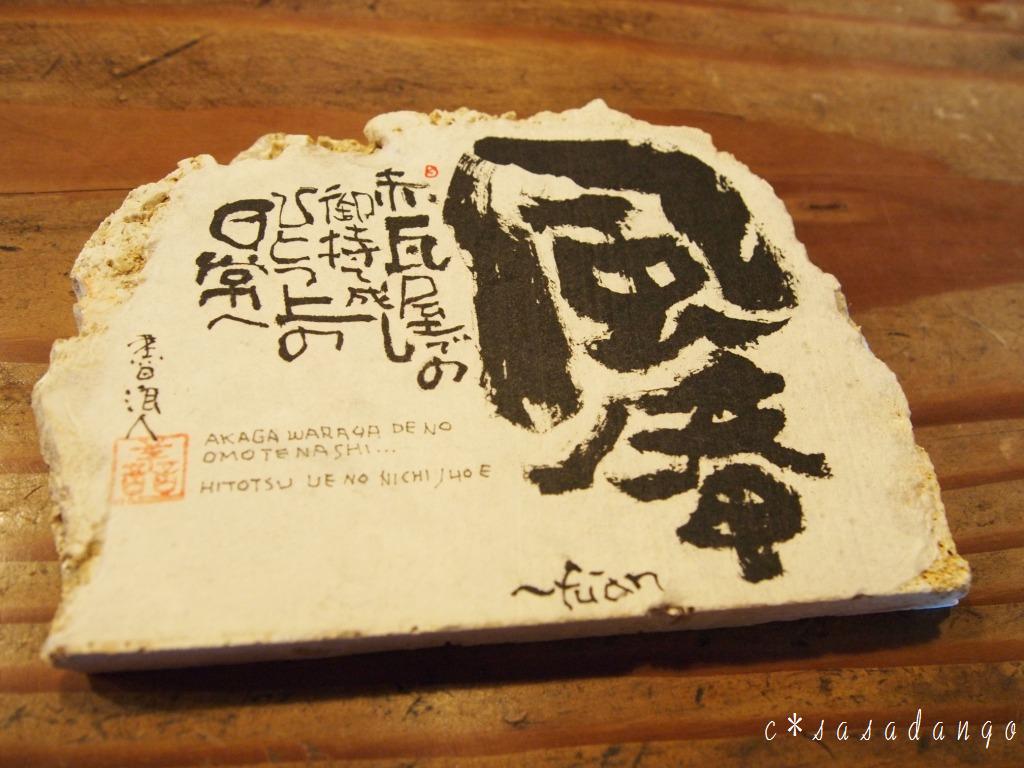 風庵
赤瓦屋での
御持て成し
ひとつ上の
日常へ
AKAGAWARAYA DE NO
OMOTENASHI...
HITOTSU UE NO NICHIJYO E
~fūan
c*sasadango